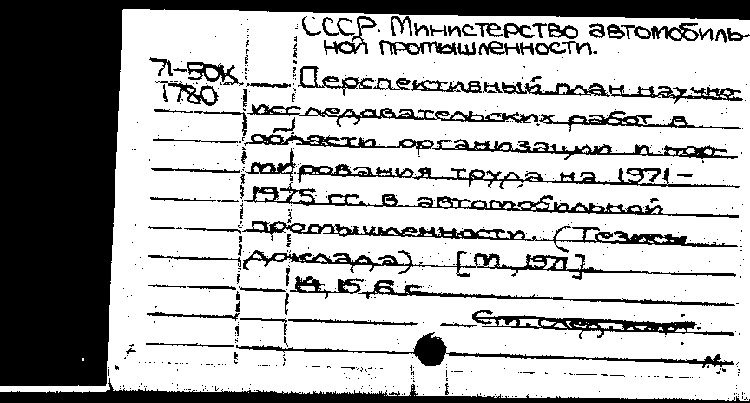 СССР. Министерство автомобиль-
ной промышленности.
71-50К
1780
Перспективный план научно-
исследовательских работ в
области организации и нор-
мирования труда на 1971-
1975 гг. в автомобильной
промышленности. (Тезисы
доклада). [М., 1971].
14, 15, 6 с
См. след. карт.